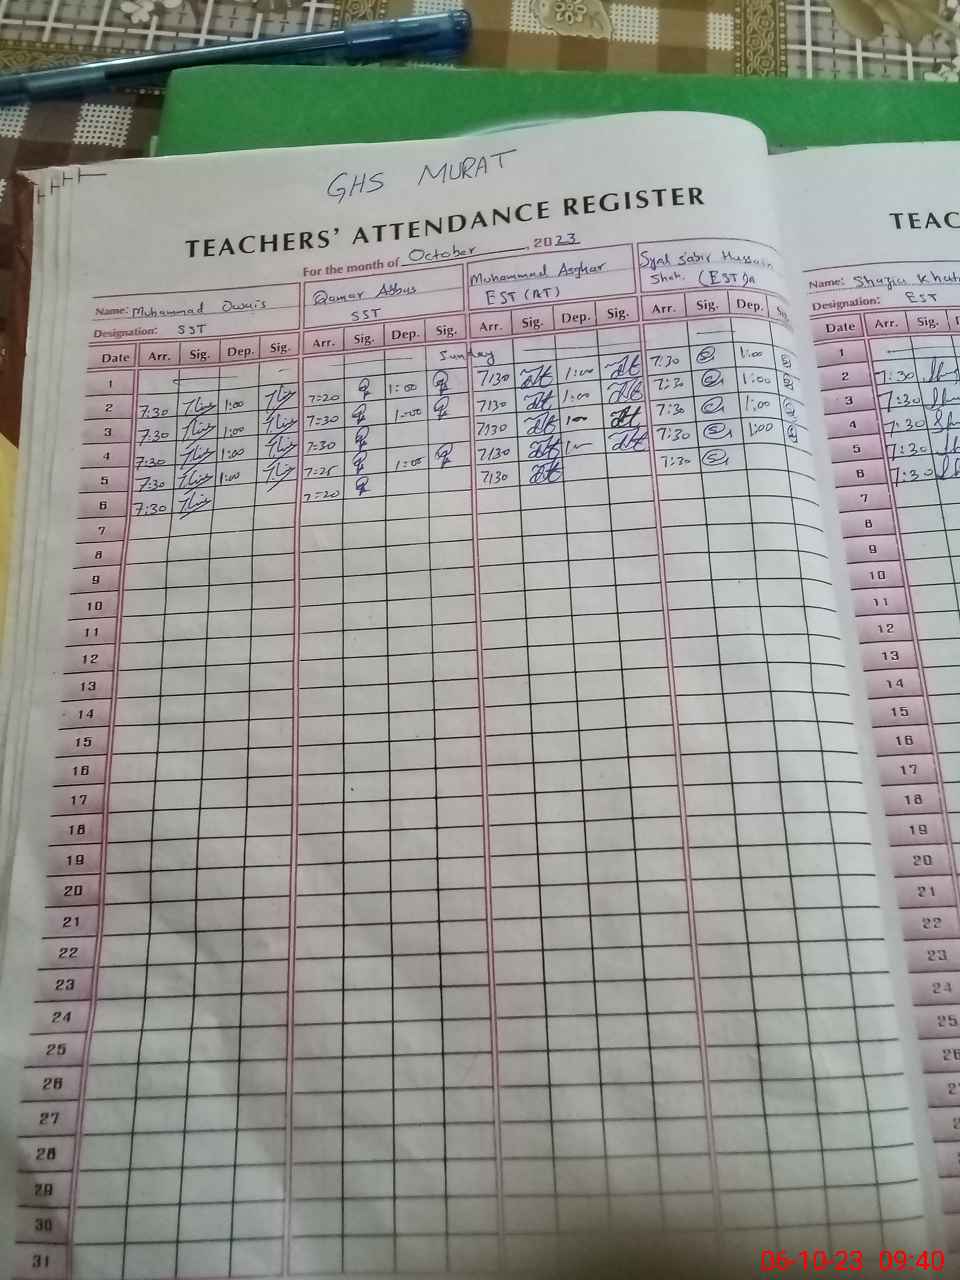 GHS MURAT
TEACHERS' ATTENDANCE REGISTER
For the month of October, 2023
Name: Muhammad Owais Qamar Abbas Muhammad Asghar Syed Sabir Hussain Shah
Designation: SST SST EST (AT) (EST)
Date Arr. Sig. Dep. Sig. Arr. Sig. Dep. Sig. Arr. Sig. Dep. Sig. Arr. Sig. Dep. Sig.
1 Sunday
2 7:30 1:00 7=20 1:00 7:30 1:00 7:30 1:00
3 7:30 1:00 7=30 1:00 7:30 1:00 7:30 1:00
4 7:30 1:00 7=30 7:30 7:30 1:00
5 7:30 1:00 7=25 1:00 7:30 7:30 1:00
6 7:30 7=20 7:30 7:30
7
8
9
10
11
12
13
14
15
16
17
18
19
20
21
22
23
24
25
26
27
28
29
30
31
TEAC
Name: Shazia
Designation: EST
Date Arr. Sig.
1
2 7:30
3 7:30
4 7:30
5 7:30
6 7:30
7
8
9
10
11
12
13
14
15
16
17
18
19
20
21
22
23
24
25
06-10-23 09:40